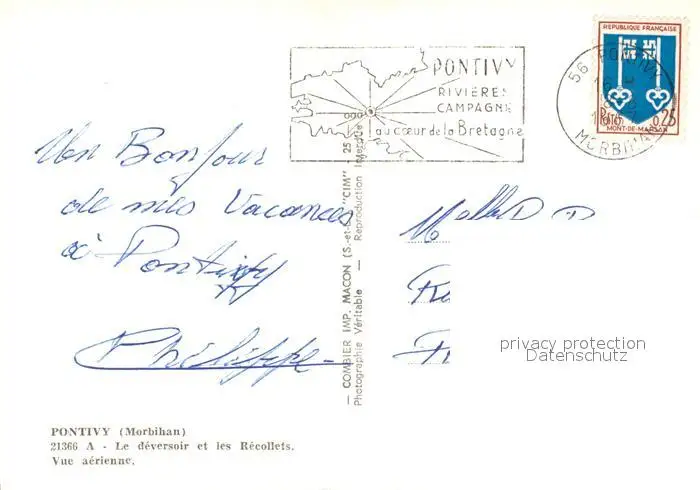 REPUBLIQUE FRANÇAISE
PONTIVY
RIVIÈRES
CAMPAGNE
au cœur de la Bretagne
56 PONTIVY
MORBIHAN
0,25
MONT-DE-MARSAN
Un Bonjour
de mes Vacances
à Pontivy
Philippe
— COMBIER IMP. MACON (S.-et-L.) "CIM"
Photographie Véritable — Reproduction Interdite
privacy protection
Datenschutz
PONTIVY (Morbihan)
21366 A - Le déversoir et les Récollets.
Vue aérienne.